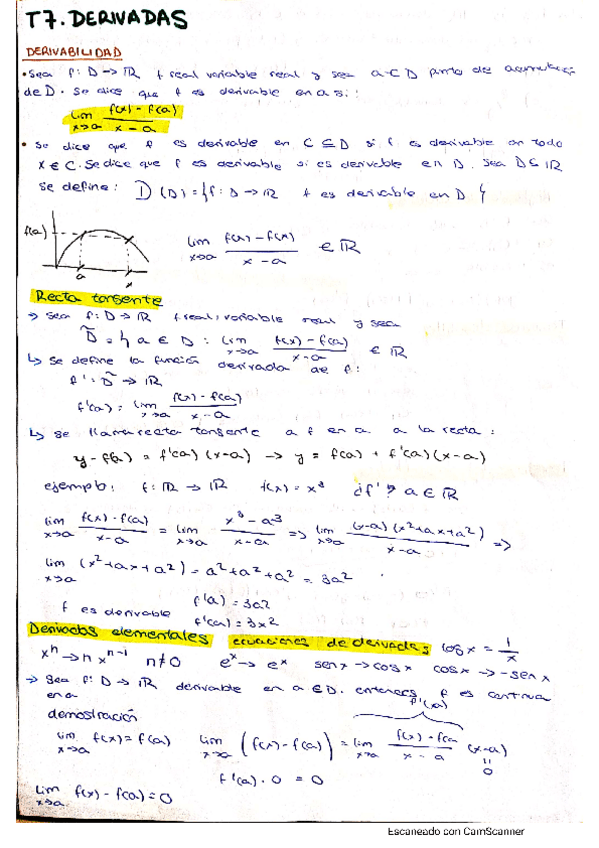 T7. DERIVADAS
DERIVABILIDAD
• Sea f: D → ℝ f real variable real y sea a ∈ D punto de acumulación
de D. Se dice que f es derivable en a si:
lim x→a (f(x) - f(a))/(x - a)
• Se dice que f es derivable en C ⊆ D si f es derivable en todo
x ∈ C. Se dice que f es derivable si es derivable en D. Sea D ⊆ ℝ
se define: D (D) = { f: D → ℝ f es derivable en D }
f(a) lim x→a (f(x) - f(x))/(x - a) ∈ ℝ
a x
Recta tangente
→ Sea f: D → ℝ f real, variable real y sea
D̃ = { a ∈ D : lim x→a (f(x) - f(a))/(x - a) ∈ ℝ
↳ Se define la función derivada de f:
f': D̃ → ℝ
f'(a) = lim x→a (f(x) - f(a))/(x - a)
↳ se llama recta tangente a f en a a la recta:
y - f(a) = f'(a) (x-a) → y = f(a) + f'(a) (x-a)
ejemplo: f: ℝ → ℝ f(x) = x³ ¿f'? a ∈ ℝ
lim x→a (f(x) - f(a))/(x - a) = lim x→a (x³ - a³)/(x - a) => lim x→a ((x-a) (x² + ax + a²))/(x - a) =>
lim x→a (x² + ax + a²) = a² + a² + a² = 3a²
f es derivable f'(a) = 3a²
f'(a) = 3x²
Derivadas elementales ecuaciones de derivadas log x = 1/x
xⁿ → n xⁿ⁻¹ n ≠ 0 eˣ → eˣ sen x → cos x cos x → - sen x
→ Sea f: D → ℝ derivable en a ∈ D. entonces f es continua
en a
f'(a)
demostración
lim x→a f(x) = f(a) lim x→a (f(x) - f(a)) = lim x→a (f(x) - f(a))/(x - a) (x-a)
= 0
f'(a) · 0 = 0
lim x→a f(x) - f(a) = 0
Escaneado con CamScanner